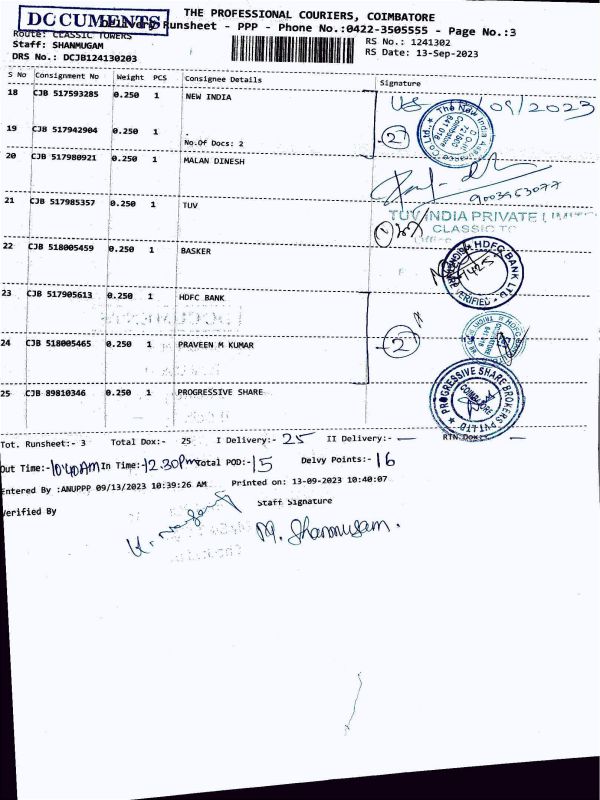 THE PROFESSIONAL COURIERS, COIMBATORE
DOCUMENTS
Delivery Runsheet - PPP - Phone No.:0422-3505555 - Page No.:3
Route: CLASSIC TOWERS
Staff: SHANMUGAM
DRS No.: DCJB124130203
RS No.: 1241302
RS Date: 13-Sep-2023
S No Consignment No Weight PCS Consignee Details Signature
18 CJB 517593285 0.250 1 NEW INDIA
/09/2023
19 CJB 517942904 0.250 1 .
No.Of Docs: 2
2
The New India Assurance Co Ltd.,
20 CJB 517980921 0.250 1 MALAN DINESH
9003963077
21 CJB 517985357 0.250 1 TUV
TUV INDIA PRIVATE LIMITED
CLASSIC TO
1
22 CJB 518005459 0.250 1 BASKER
HDFC BANK LTD
VERIFIED
23 CJB 517905613 0.250 1 HDFC BANK
2
24 CJB 518005465 0.250 1 PRAVEEN M KUMAR
25 CJB 89810346 0.250 1 PROGRESSIVE SHARE
PROGRESSIVE SHARE BROKERS PVT LTD
COIMBATORE
Tot. Runsheet:- 3 Total Dox:- 25 I Delivery:- 25 II Delivery:- — RTN Dox:- —
Out Time:- 10:40AM In Time:- 12.30Pm Total POD:- 15 Delvy Points:- 16
Entered By :ANUPPP 09/13/2023 10:39:26 AM Printed on: 13-09-2023 10:40:07
Verified By Staff Signature
M. Shanmugam.